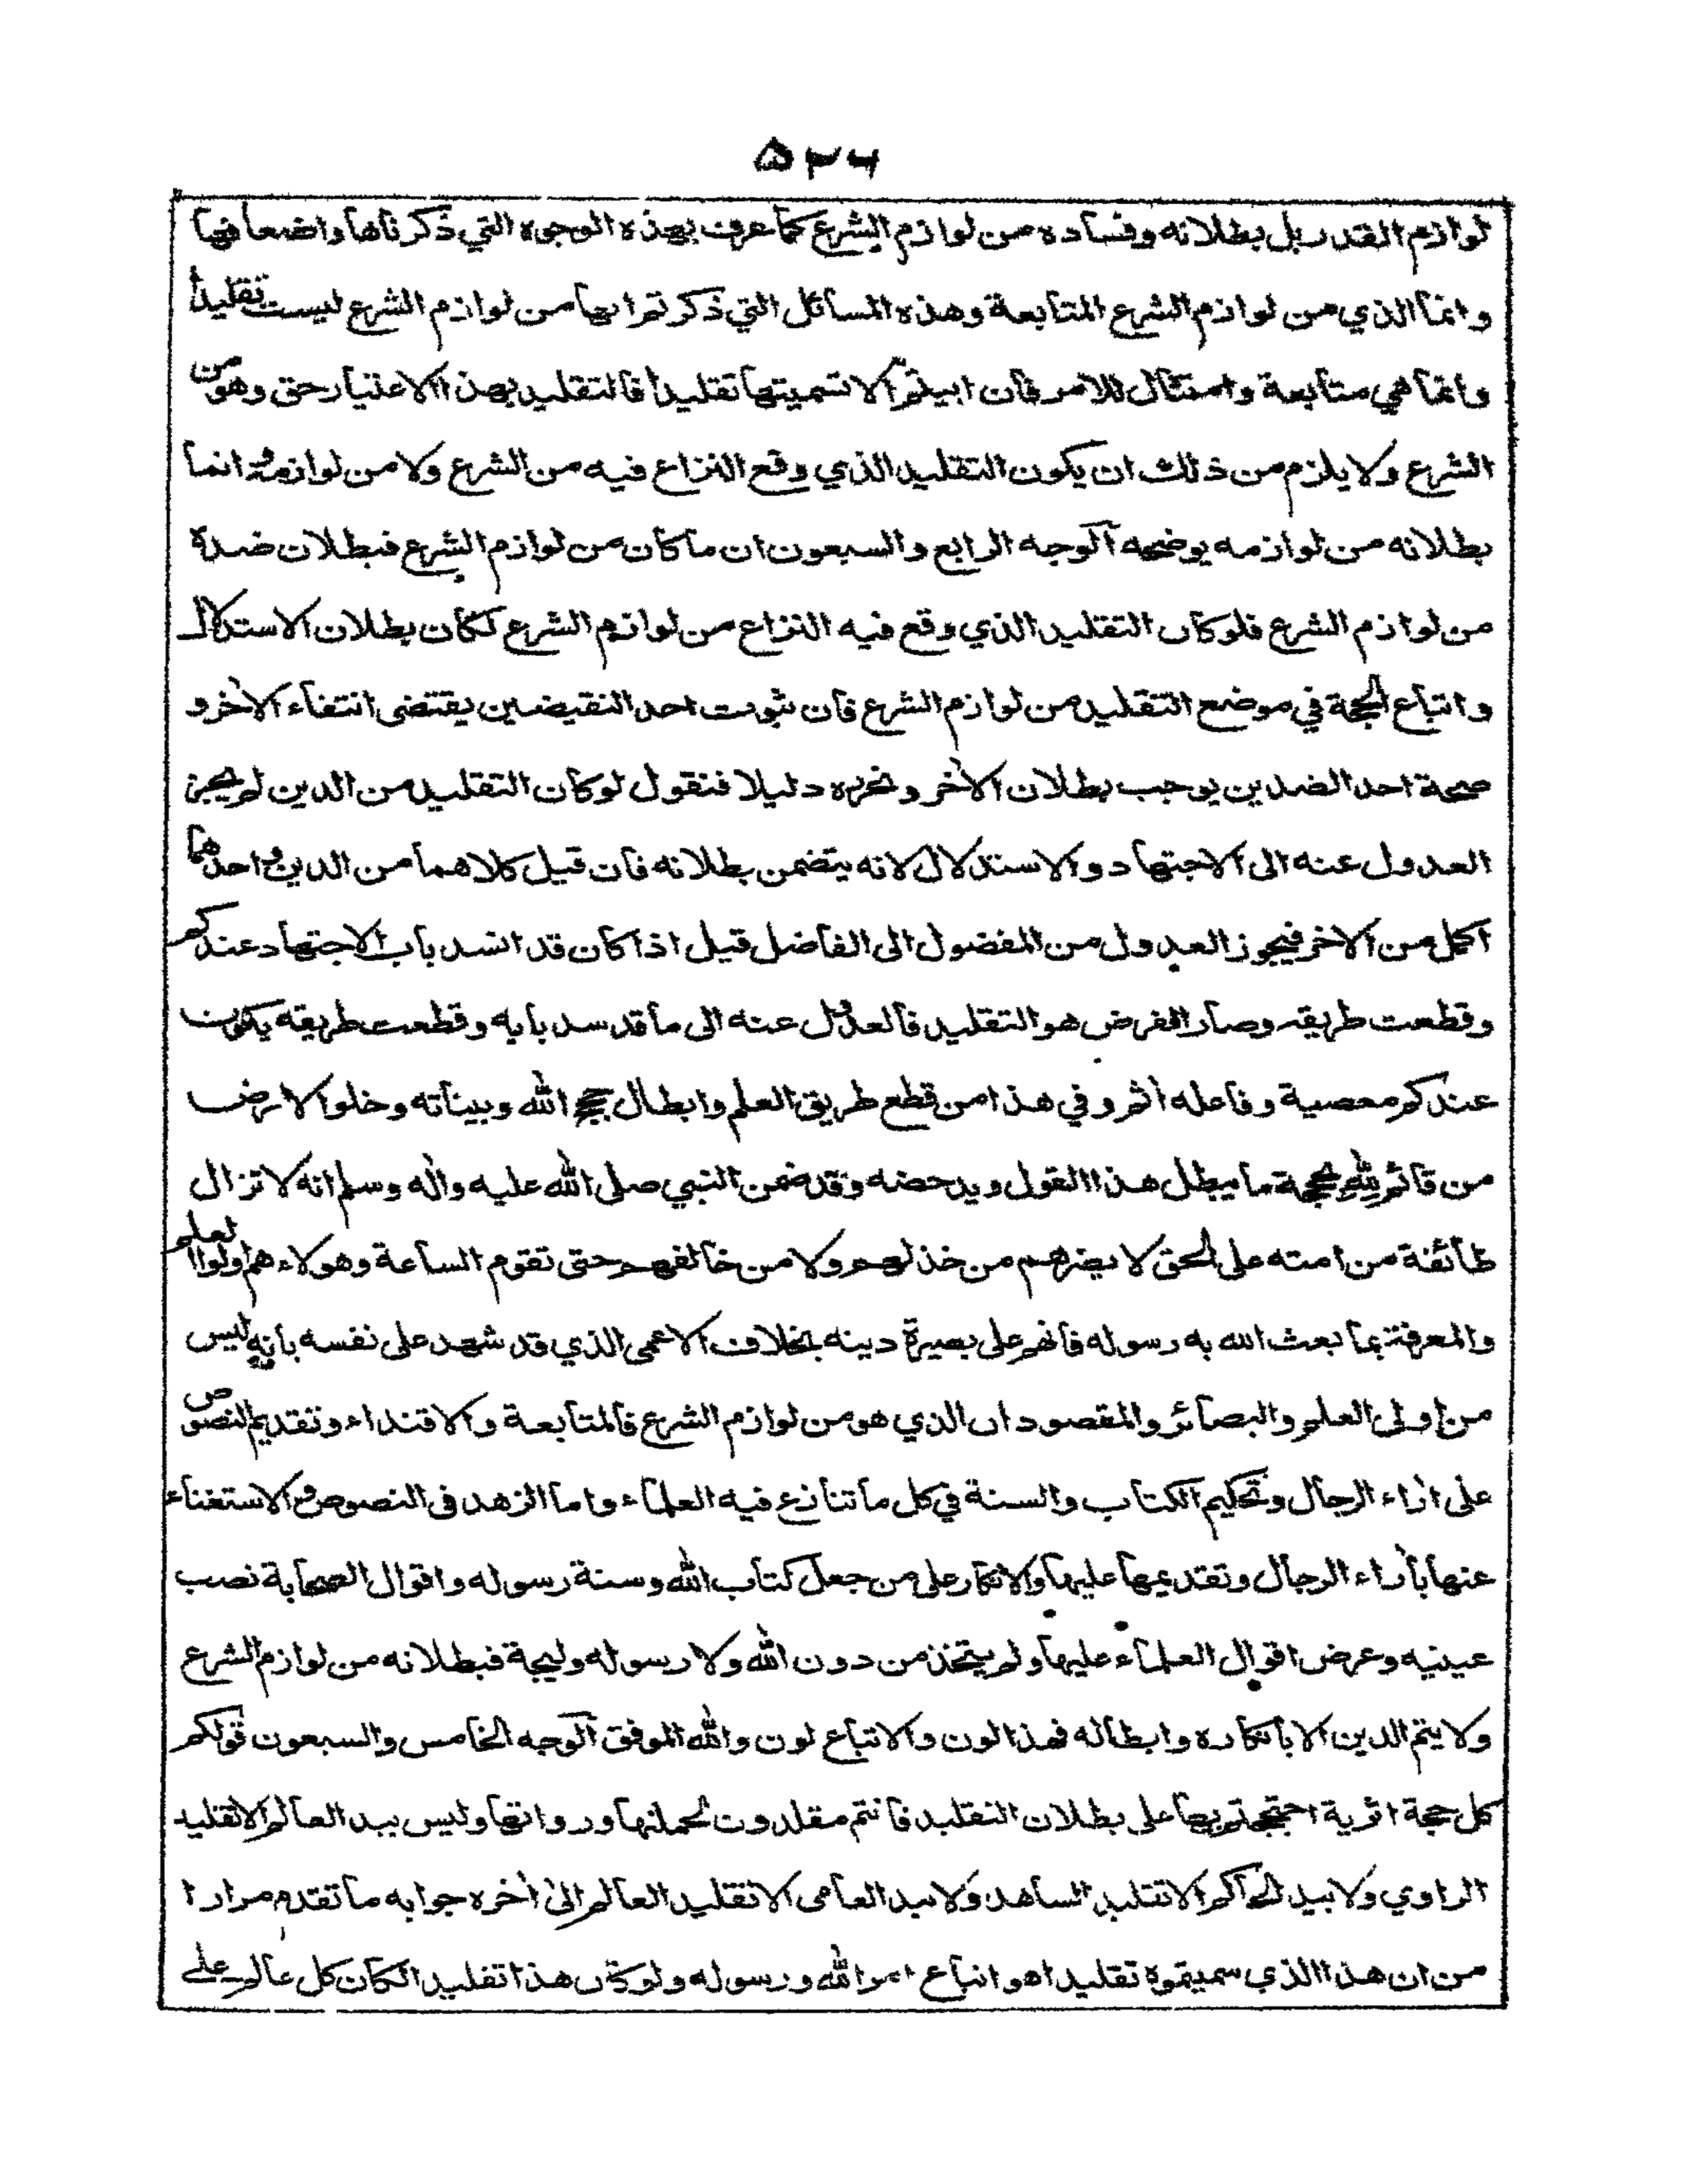 ۵۲۶
لوازم القدر بل بطلانه وفساده من لوازم الشرع كما عرف بهذه الوجوه التي ذكرناها واضعافها
وانما الذي من لوازم الشرع المتابعة وهذه المسائل التي ذكرتم انها من لوازم الشرع ليست تقليداً
وانما هي متابعة وامتثال للامر فان ابيتم الا تسميتها تقليداً فالتقليد بهذا الاعتبار حق وهو من
الشرع ولا يلزم من ذلك ان يكون التقليد الذي وقع النزاع فيه من الشرع ولا من لوازمه انما
بطلانه من لوازمه يوضحه الوجه الرابع والسبعون ان ما كان من لوازم الشرع فبطلان ضده
من لوازم الشرع فلو كان التقليد الذي وقع فيه النزاع من لوازم الشرع لكان بطلان الاستدلال
واتباع الحجة في موضع التقليد من لوازم الشرع فان ثبوت احد النقيضين يقتضى انتفاء الآخر و
صحة احد الضدين يوجب بطلان الآخر ونحرره دليلا فنقول لو كان التقليد من الدين لم يجز
العدول عنه الى الاجتهاد والاستدلال لانه يتضمن بطلانه فان قيل كلاهما من الدين واحدهما
اكمل من الاخر فيجوز العدول من المفضول الى الفاضل قيل اذا كان قد انسد باب الاجتهاد عندكم
وقطعت طريقه وصار الفرض هو التقليد فالعدول عنه الى ما قد سد بابه وقطعت طريقه يكون
عندكم معصية وفاعله آثم وفي هذا من قطع طريق العلم وابطال حجج الله وبيناته وخلو الارض
من قائم لله بحجة ما يبطل هذا القول ويدحضه وقد ضمن النبي صلى الله عليه وآله وسلم انه لا تزال
طائفة من امته على الحق لا يضرهم من خذلهم ولا من خالفهم حتى تقوم الساعة وهولاء هم اولوا العلم
والمعرفة بما بعث الله به رسوله فانهم على بصيرة دينه بخلاف الاعمى الذي قد شهد على نفسه بانه ليس
من اولى العلم والبصائر والمقصود ان الذي هو من لوازم الشرع فالمتابعة والاقتداء وتقديم النصوص
على اراء الرجال وتحكيم الكتاب والسنة في كل ما تنازع فيه العلماء واما الزهد فى النصوص والاستغناء
عنها بآراء الرجال وتقديمها عليها والانكار على من جعل كتاب الله وسنة رسوله واقوال الصحابة نصب
عينيه وعرض اقوال العلماء عليها ولم يتخذ من دون الله ولا رسوله وليجة فبطلانه من لوازم الشرع
ولا يتم الدين الا بانكاره وابطاله فهذا لون والاتباع لون والله الموفق الوجه الخامس والسبعون قولكم
كل حجة اثرية احتججتم بها على بطلان التقليد فانتم مقلدون لحملتها ورواتها وليس بيد العالم الا تقليد
الراوي ولا بيد الحاكم الا تقليد الشاهد ولا بيد العامى الا تقليد العالم الى آخره جوابه ما تقدم مرارا
من ان هذا الذي سميتموه تقليدا هو اتباع امر الله ورسوله ولو كان هذا تقليد الكان كل عالم على